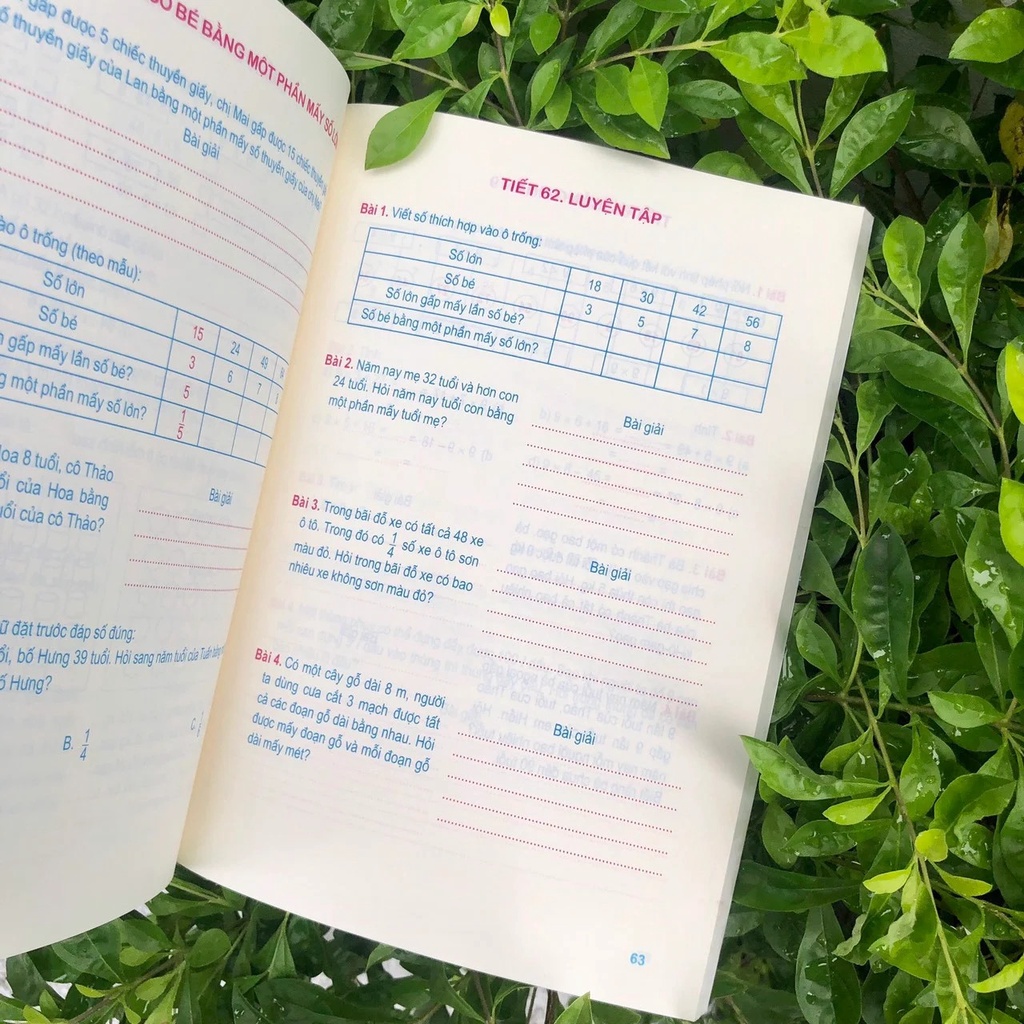 SỐ BÉ BẰNG MỘT PHẦN MẤY SỐ
gấp được 5 chiếc thuyền giấy, chị Mai gấp được 15 chiếc thuyền
số thuyền giấy của Lan bằng một phần mấy số thuyền giấy của chị Mai
Bài giải
ào ô trống (theo mẫu):
Số lớn 15 24 49
Số bé 3 6 7
gấp mấy lần số bé? 5
một phần mấy số lớn? 1/5
Hoa 8 tuổi, cô Thảo
ổi của Hoa bằng
uổi của cô Thảo?
Bài giải
ữ đặt trước đáp số đúng:
ổi, bố Hưng 39 tuổi. Hỏi sang năm tuổi của Tuấn
ố Hưng?
B. 1/4
C.
TIẾT 62. LUYỆN TẬP
Bài 1. Viết số thích hợp vào ô trống:
Số lớn 18 30 42 56
Số bé 3 5 7 8
Số lớn gấp mấy lần số bé?
Số bé bằng một phần mấy số lớn?
Bài 2. Năm nay mẹ 32 tuổi và hơn con
24 tuổi. Hỏi năm nay tuổi con bằng
một phần mấy tuổi mẹ?
Bài giải
Bài 3. Trong bãi đỗ xe có tất cả 48 xe
ô tô. Trong đó có 1/4 số xe ô tô sơn
màu đỏ. Hỏi trong bãi đỗ xe có bao
nhiêu xe không sơn màu đỏ?
Bài giải
Bài 4. Có một cây gỗ dài 8 m, người
ta dùng cưa cắt 3 mạch được tất
cả các đoạn gỗ dài bằng nhau. Hỏi
được mấy đoạn gỗ và mỗi đoạn gỗ
dài mấy mét?
Bài giải
63